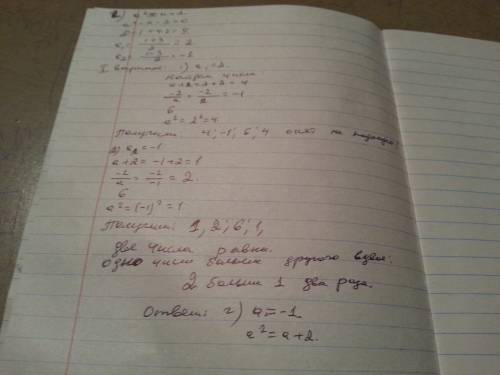 a² - a - 2 = 0
D = 1 + 4·2 = 9
a₁ = (1+3)/2 = 2
a₂ = (1-3)/2 = -1
I вариант: 1) a₁ = 2.
числа
a+2 = 2+2 = 4
-2/a = -2/2 = -1
6
a² = 2² = 4
Получим: 4; -1; 6; 4 не подходит
2) a₂ = -1
a+2 = -1+2 = 1
-2/a = -2/-1 = 2.
6
a² = (-1)² = 1
Получим: 1, 2; 6; 1,
две числа равны.
одно число больше другого вдвое:
2 больше 1 два раза.
Ответ: г) a = -1.
a² = a+2.